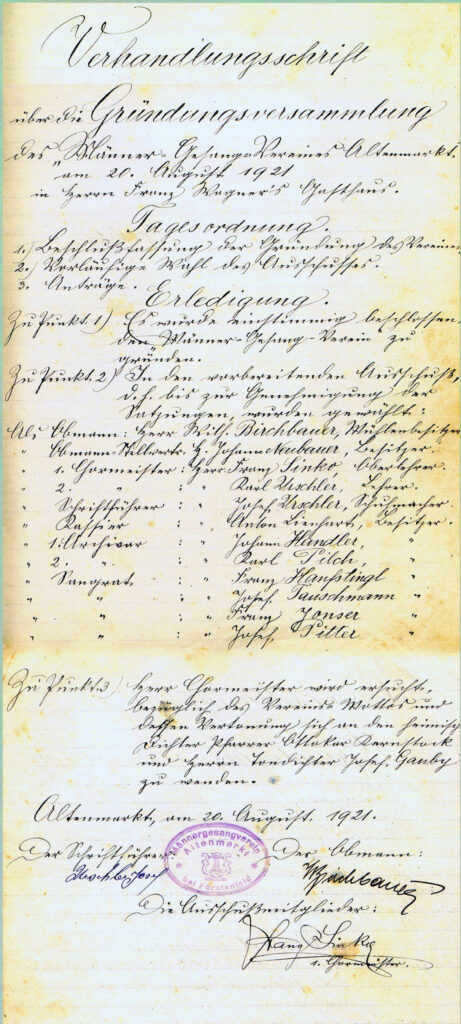 Verhandlungsschrift
über die Gründungsversammlung
des „Männer-Gesang-Vereines Altenmarkt.
am 20. August 1921
in Herrn Franz Wagner's Gasthaus.
Tagesordnung.
1.) Beschlußfassung der Gründung des Vereines
2.) Vorläufige Wahl des Ausschusses.
3. Anträge.
Erledigung.
Zu Punkt 1) Es wurde einstimmig beschlossen,
den „Männer-Gesang-Verein zu
gründen.
Zu Punkt 2) In den vorbereitenden Ausschuß,
d.h. bis zur Genehmigung der
Satzungen, wurden gewählt:
Als Obmann: Herr Wilh. Birchbauer, Mühlenbesitzer
" Obmann-Stellvertr. H. Johann Neubauer, Besitzer.
" 1. Chormeister: Herr Franz Sinko Oberlehrer.
" 2. " : " Karl Urschler, Lehrer.
" Schriftführer : " Josef Urschler, Schuhmacher.
" Kassier : " Anton Lienhart, Besitzer.
" 1. Archivar : " Johann Handler, "
" 2. " : " Karl Pilch, "
" Sangrat : " Franz Hanfstingl "
" " : " Josef Tauschmann "
" " : " Franz Jonser "
" " : " Josef Pitter "
Zu Punkt 3) Herr Chormeister wird ersucht,
bezüglich des Vereins-Mottos und
dessen Vertonung sich an den heimisch
Dichter Pfarrer Ottokar Kernstock
und Herrn Tondichter Josef Gauby
zu wenden.
Altenmarkt, am 20. August 1921.
Der Schriftführer: Der Obmann:
Männergesangverein
Altenmarkt
bei Fürstenfeld
Urschler Josef
Birchbauer
Die Ausschußmitglieder:
Franz Sinko
1. Chormeister.